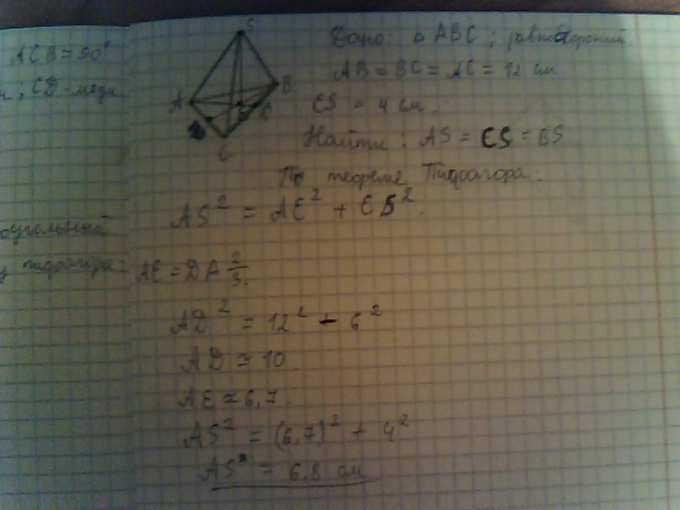 ACB = 90°
; CD - меди
S
A
B
C
Дано: △ ABC; равносторонний
AB = BC = AC = 12 см
ES = 4 см.
Найти: AS = CS = BS
По теореме Пифагора:
AS² = AE² + ES².
AE = DA 2/3.
AD² = 12² - 6²
AD ≈ 10
AE ≈ 6,7.
AS² = (6,7)² + 4²
AS² = 6,8 см
оугольный
пифагора: